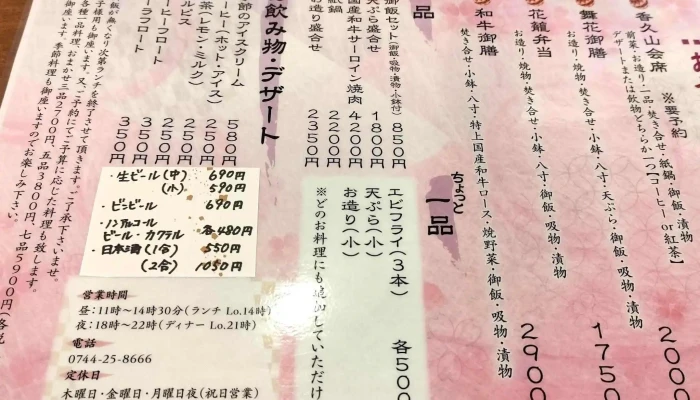 香久山会席
※要予約
前菜・お造り・一品・焚き合せ・紙鍋・御飯・吸物・漬物
デザートまたは飲物どちらか一つ【コーヒー or 紅茶】
200
舞花御膳
お造り・焼物・焚き合せ・小鉢・八寸・天ぷら・御飯・吸物・漬物
175
花籠弁当
お造り・焼物・焚き合せ・小鉢・八寸・御飯・吸物・漬物
和牛御膳
焚き合せ・小鉢・八寸・特上国産和牛ロース・焼野菜・御飯・吸物・漬物
290
ちょっと
一品
エビフライ(3本)
天ぷら(小)
お造り(小)
各500
※どのお料理にも追加していただけ
一品
御飯セット(御飯・吸物・漬物・小鉢付) 850円
天ぷら盛合せ 1800円
国産和牛サーロイン焼肉 4200円
紙鍋 2200円
お造り盛合せ 2350円
飲み物・デザート
節のアイスクリーム 580円
ーヒー(ホット・アイス) 250円
茶(レモン・ミルク) 250円
ルピス 250円
ーヒーフロート 350円
ーラフロート 350円
・生ビール(中) 690円
(小) 590円
・ビンビール 690円
・ノンアルコール
ビール・カクテル 各480円
・日本酒(1合) 550円
(2合) 1050円
営業時間
昼:11時~14時30分(ランチ Lo.14時)
夜:18時~22時(ディナー Lo.21時)
電話
0744-25-8666
定休日
木曜日・金曜日・月曜日夜(祝日営業)
飯が無くなり次第ランチを終了させて頂きます。ご了承下さいませ。
子様用も御座います。又、ご予約にてご予算に応じた料理も致します。
各種一品料理、おまかせ三品2700円、五品3800円、七品5900円(各税
います。季節料理も御座いますのでお楽しみ下さい。